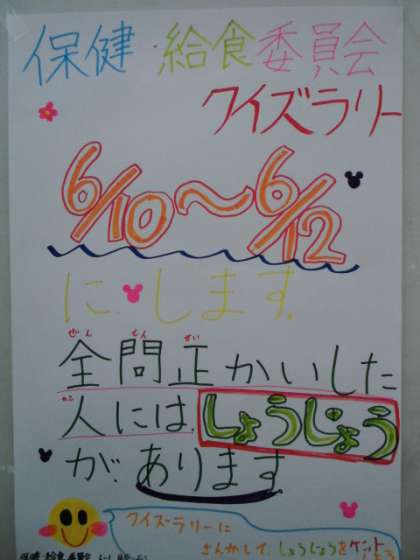 保健 給食委員会
クイズラリー
6/10〜6/12
に します.
ぜん もん せい
全問正かいした
人には しょうじょう
が あります
クイズラリーに
さんかして しょうじょうを ゲット
保健・給食委員会